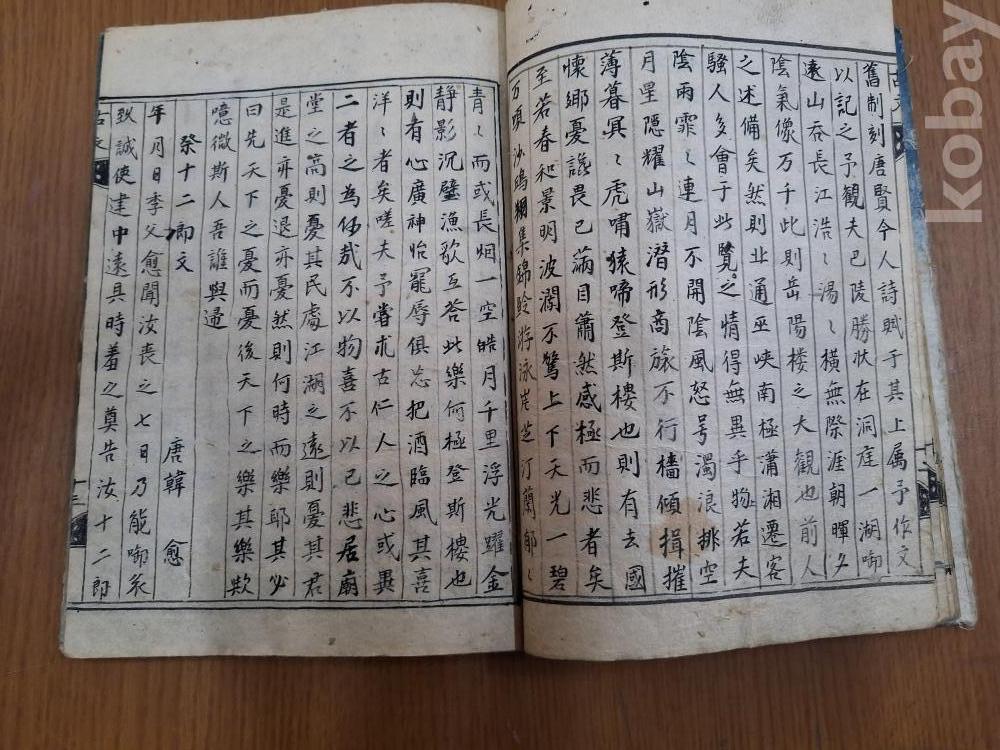 舊制刻唐賢今人詩賦于其上属予作文
以記之予觀夫巴陵勝狀在洞庭一湖啣
遠山吞長江浩〻湯〻橫無際涯朝暉夕
陰氣像万千此則岳陽楼之大觀也前人
之述備矣然則北通巫峽南極瀟湘遷客
騷人多會于此覽之情得無異乎物若夫
陰雨霏〻連月不開陰風怒号濁浪排空
月星隠耀山嶽潛形商旅不行檣傾揖摧
薄暮冥〻虎嘯猿啼登斯樓也則有去國
懷郷憂讒畏已滿目蕭然感極而悲者矣
至若春和景明波瀾不驚上下天光一碧
万頃沙鷗翔集錦鱗游泳岸芷汀蘭郁〻
青〻而或長烟一空皓月千里浮光躍金
靜影沉璧漁歌互答此樂何極登斯樓也
則有心廣神怡寵辱俱忘把酒臨風其喜
洋〻者矣嗟夫予嘗求古仁人之心或異
二者之為何哉不以物喜不以已悲居廟
堂之高則憂其民處江湖之遠則憂其君
是進亦憂退亦憂然則何時而樂耶其必
曰先天下之憂而憂後天下之樂其樂欤
噫微斯人吾誰與歸
祭十二郎文
唐韓愈
年月日季父愈聞汝喪之七日乃能啣哀
致誠使建中遠具時羞之奠告汝十二郎
古文
十三
kobay